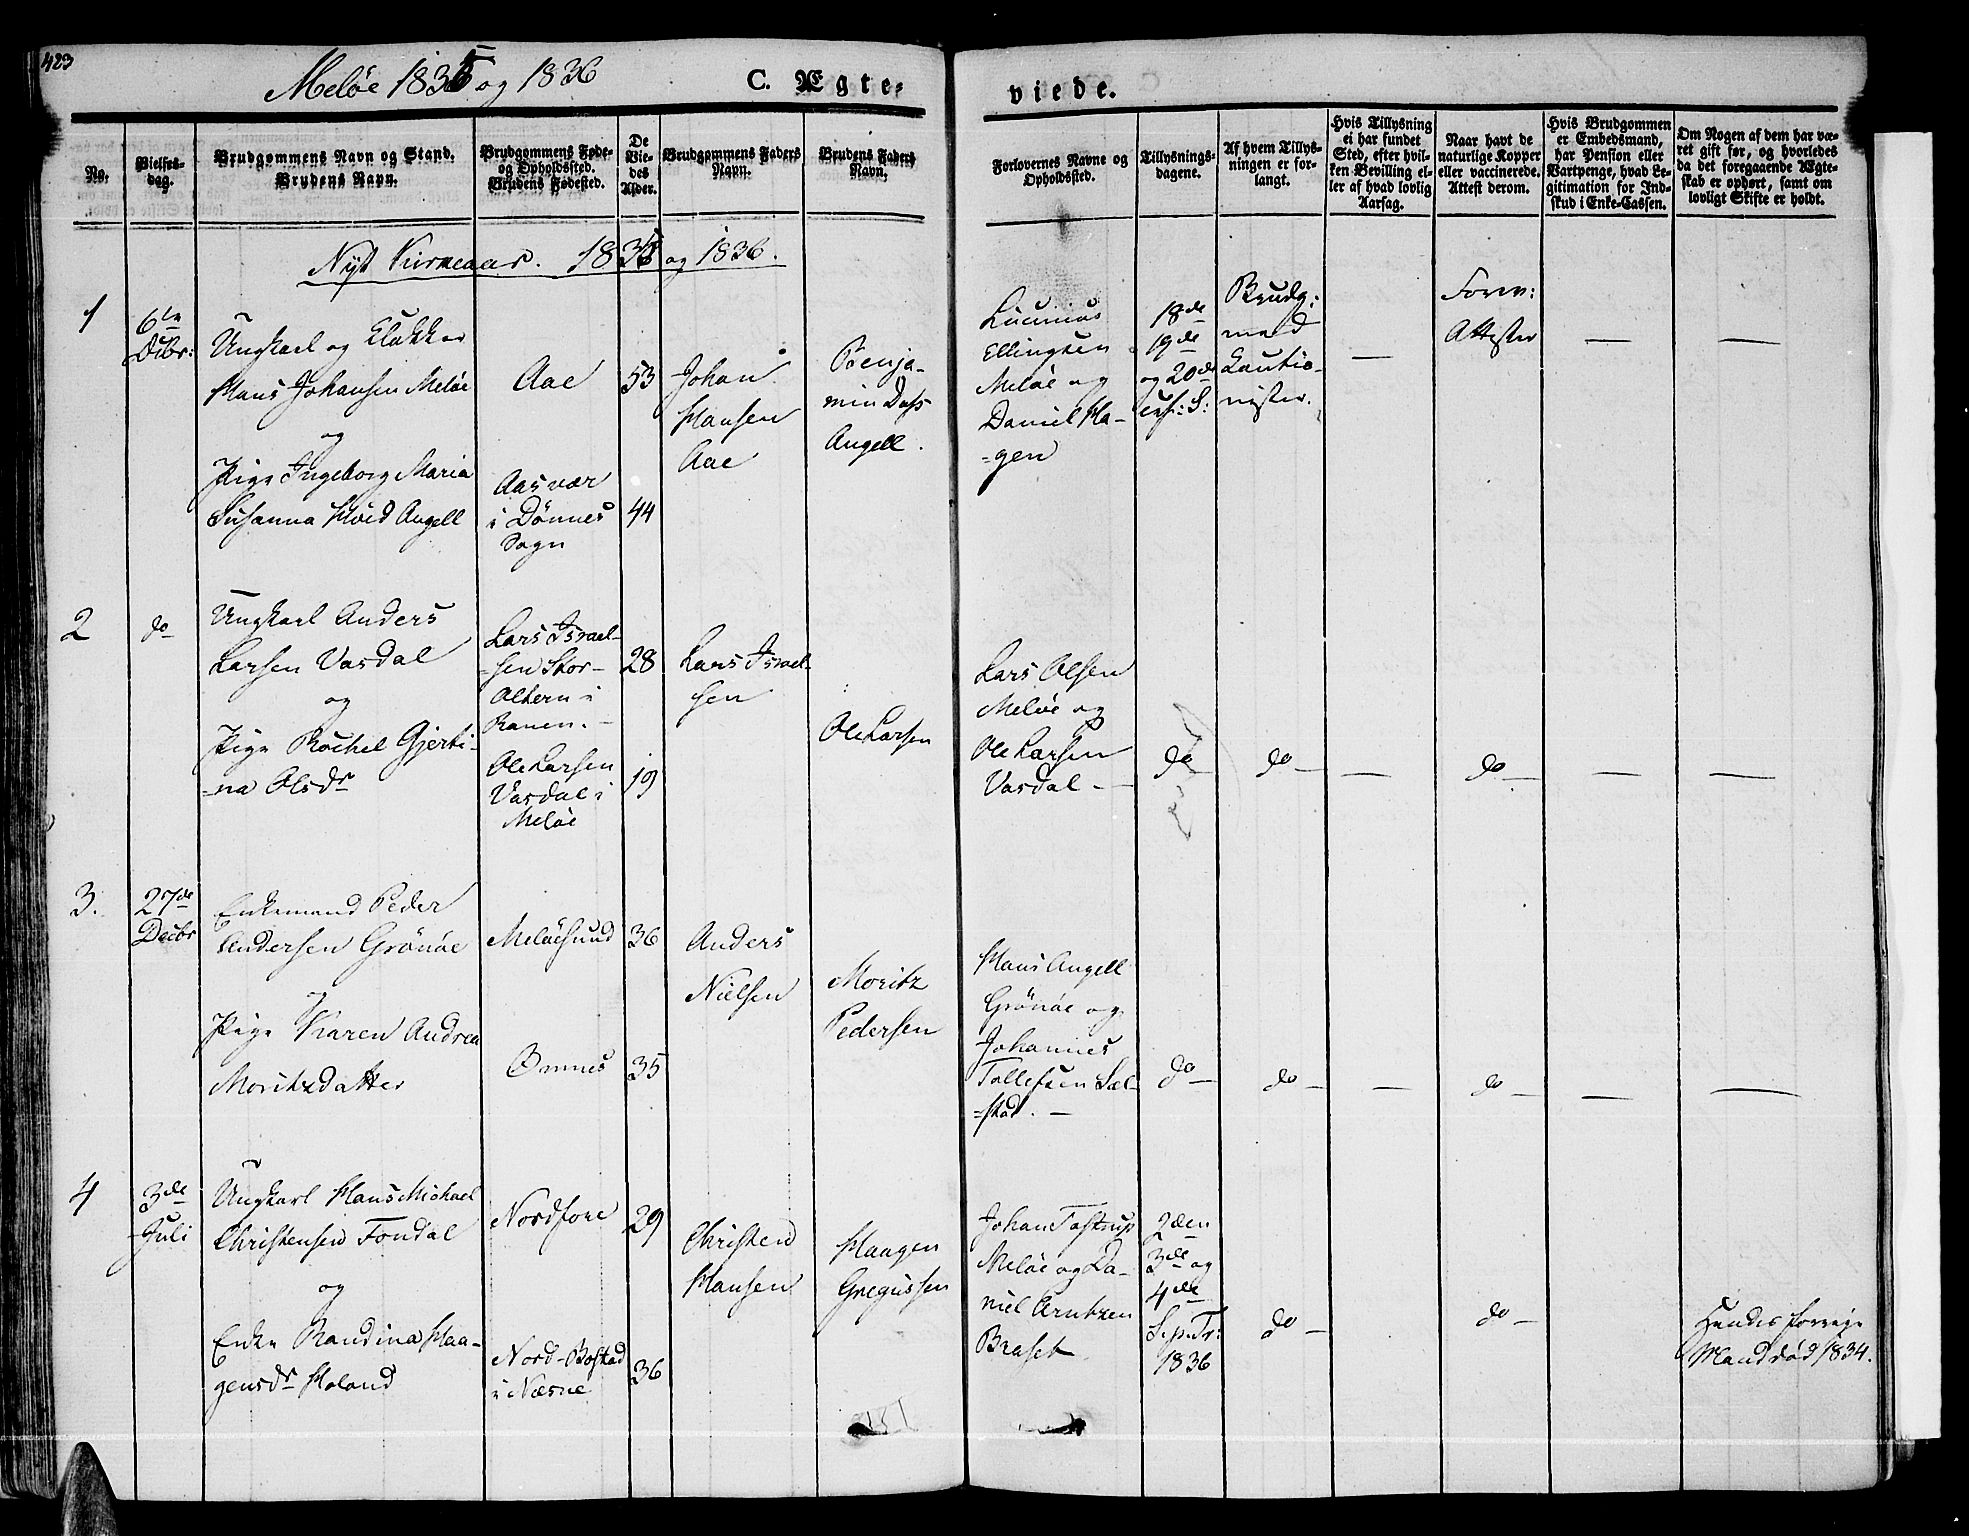 423
Meløe 1835 og 1836
C. Ægte-
viede.
No.
Vielses-
dag.
Brudgommens Navn og Stand.
Brudens Navn.
Brudgommens Føde-
og Opholdssted.
Brudens Fødested.
De
Vie-
des
Alder.
Brudgommens Faders
Navn.
Brudens Faders
Navn.
Forlovernes Navne og
Opholdssted.
Tillysnings-
dagene.
Af hvem Tillys-
ningen er for-
langt.
Hvis Tillysning
ei har fundet
Sted, efter hvil-
ken Bevilling el-
ler af hvad lovlig
Aarsag.
Naar havt de
naturlige Kopper
eller vaccinerede.
Attest derom.
Hvis Brudgommen
er Embedsmand,
har Pension eller
Vartpenge, hvad Le-
gitimation for Ind-
skud i Enke-Cassen.
Om Nogen af dem har væ-
ret gift før, og hvorledes
da det foregaaende Ægte-
skab er ophørt, samt om
lovligt Skifte er holdt.
Nyt Kirkeaar. 1835 og 1836.
1
6te
Decbr:
Ungkarl og Klokker
Hans Johansen Meløe
og
Pige Ingeborg Maria
Susanna Høid Angell
Aae
Aasvær
i Dønnes
Sogn
53
44
Johan
Hansen
Aae
Benja-
min Dass
Angell.
Ellingsen
Meløe og
Daniel Ha-
=gen
18de
19de
og 20de
Brudg:
med
Cautio-
nister.
—
Forev:
Attester
—
—
2
do
Ungkarl Anders
Larsen Vasdal
og
Pige Rachel Gjerti-
=na Olsdr
Lars Israel-
=sen Stor-
Altern i
Ranen.-
Ole Larsen
Vasdal i
Meløe
28
19
Lars Israel-
sen
Ole Larsen
Lars Olsen
Meløe og
Ole Larsen
Vasdal -
do
do —
—
do —
—
—
3.
27de
Decbr
Enkemand Peder
Andersen Grønøe
og
Pige Karen Andrea
Moritzdatter
Meløesund
Ømnes
36
35
Anders
Nielsen
Moritz
Pedersen
Hans Angell
Grønøe og
Johannes
Tollefsen Sæl-
=stad. —
do —
do —
—
do —
—
—
4
3de
Juli
Ungkarl Hans Michael
Christensen Fondal
og
Enke Randina Haa-
gensdr Holand
Nordfore
Nord-Bostad
i Næsne
29
36
Christen
Hansen
Haagen
Gregussen
Johan Tostrup
Meløe og Da-
niel Arntzen
Braset
2den
3de og
4de
S. p. Tr:
1836
do —
do —
Hendes forrige
Mand død 1834.